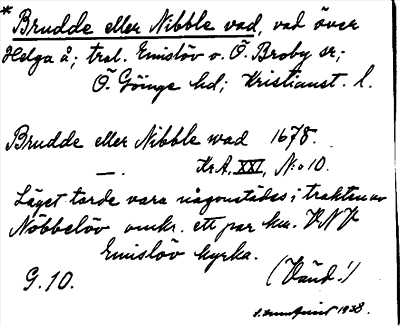 * Brudde eller Nibble vad, vad över
Helga å; tral. Emislöv o. Ö. Broby sr;
Ö. Göinge hd; Kristianst. l.
Brudde eller Nibble wad 1678.
—. Kr.A, XXI, N:o 10.
Läget torde vara någonstädes i trakten av
Nöbbelöv omkr. ett par km. VNV
Emislöv kyrka.
G. 10. (Vänd!)
1938.